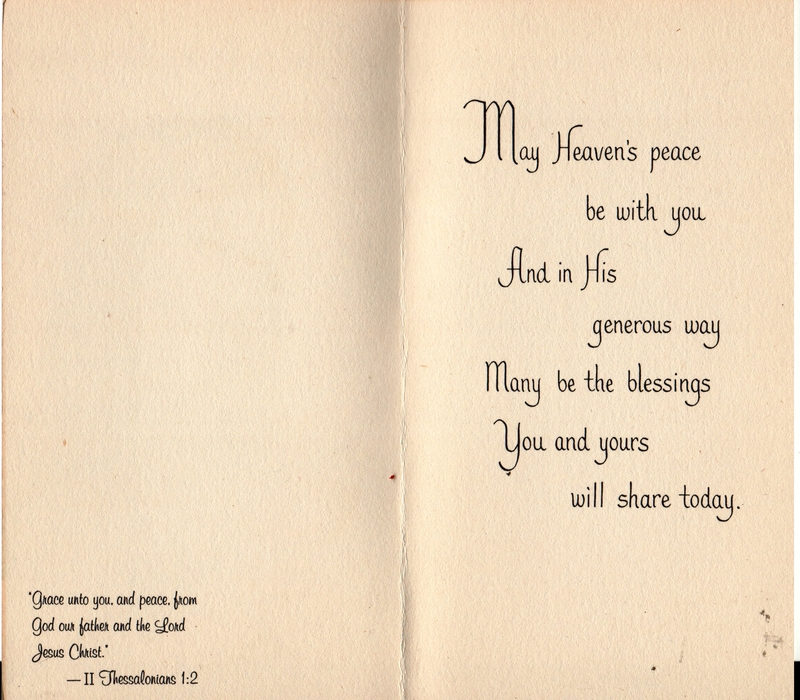 "Grace unto you, and peace, from
God our father and the Lord
Jesus Christ."
— II Thessalonians 1:2
May Heaven's peace
be with you
And in His
generous way
Many be the blessings
You and yours
will share today.